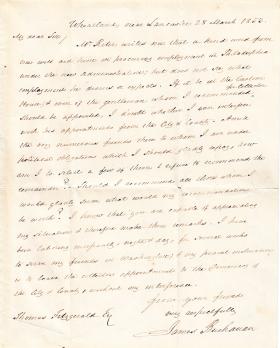 Wheatland, near Lancaster 28 March 1853.
My dear Sir,
Mr. writes me that a kind word from
me will aid him in procuring employment in Philadelphia
under the new administration; but does not say what
employment he desires or expects. If it be in the Custom
House, & one of the gentlemen whom I recommended for Collector
should be appointed, I doubt whether I can interfere
with his appointments from the City & County. Amid
the very numerous friends there to whom I am under
political obligations which I should gladly repay, how
am I to select a few of them & refuse to recommend the
remainder? Should I recommend all those whom I
would gladly serve what would my recommendations
be worth? I know that you are capable of appreciating
my situation & therefore make these remarks. I have
been laboring & night & day for several weeks
to serve my friends in Washington; & my personal inclination
is to leave the appointments to the Democracy of
the City & County without my interference.
From your friend
very respectfully
James Buchanan
Thomas Fitzgerald Esq